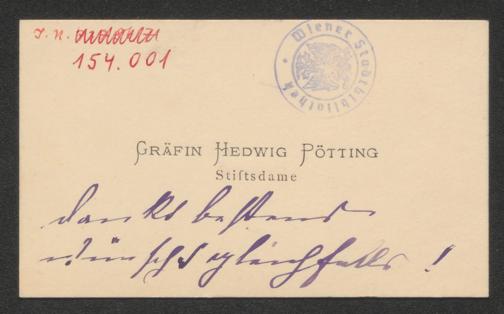 I. N.
154.001
Wiener Stadtbibliothek
GRÄFIN HEDWIG PÖTTING
Stiftsdame
dankt bestens
wünscht gleichfalls!